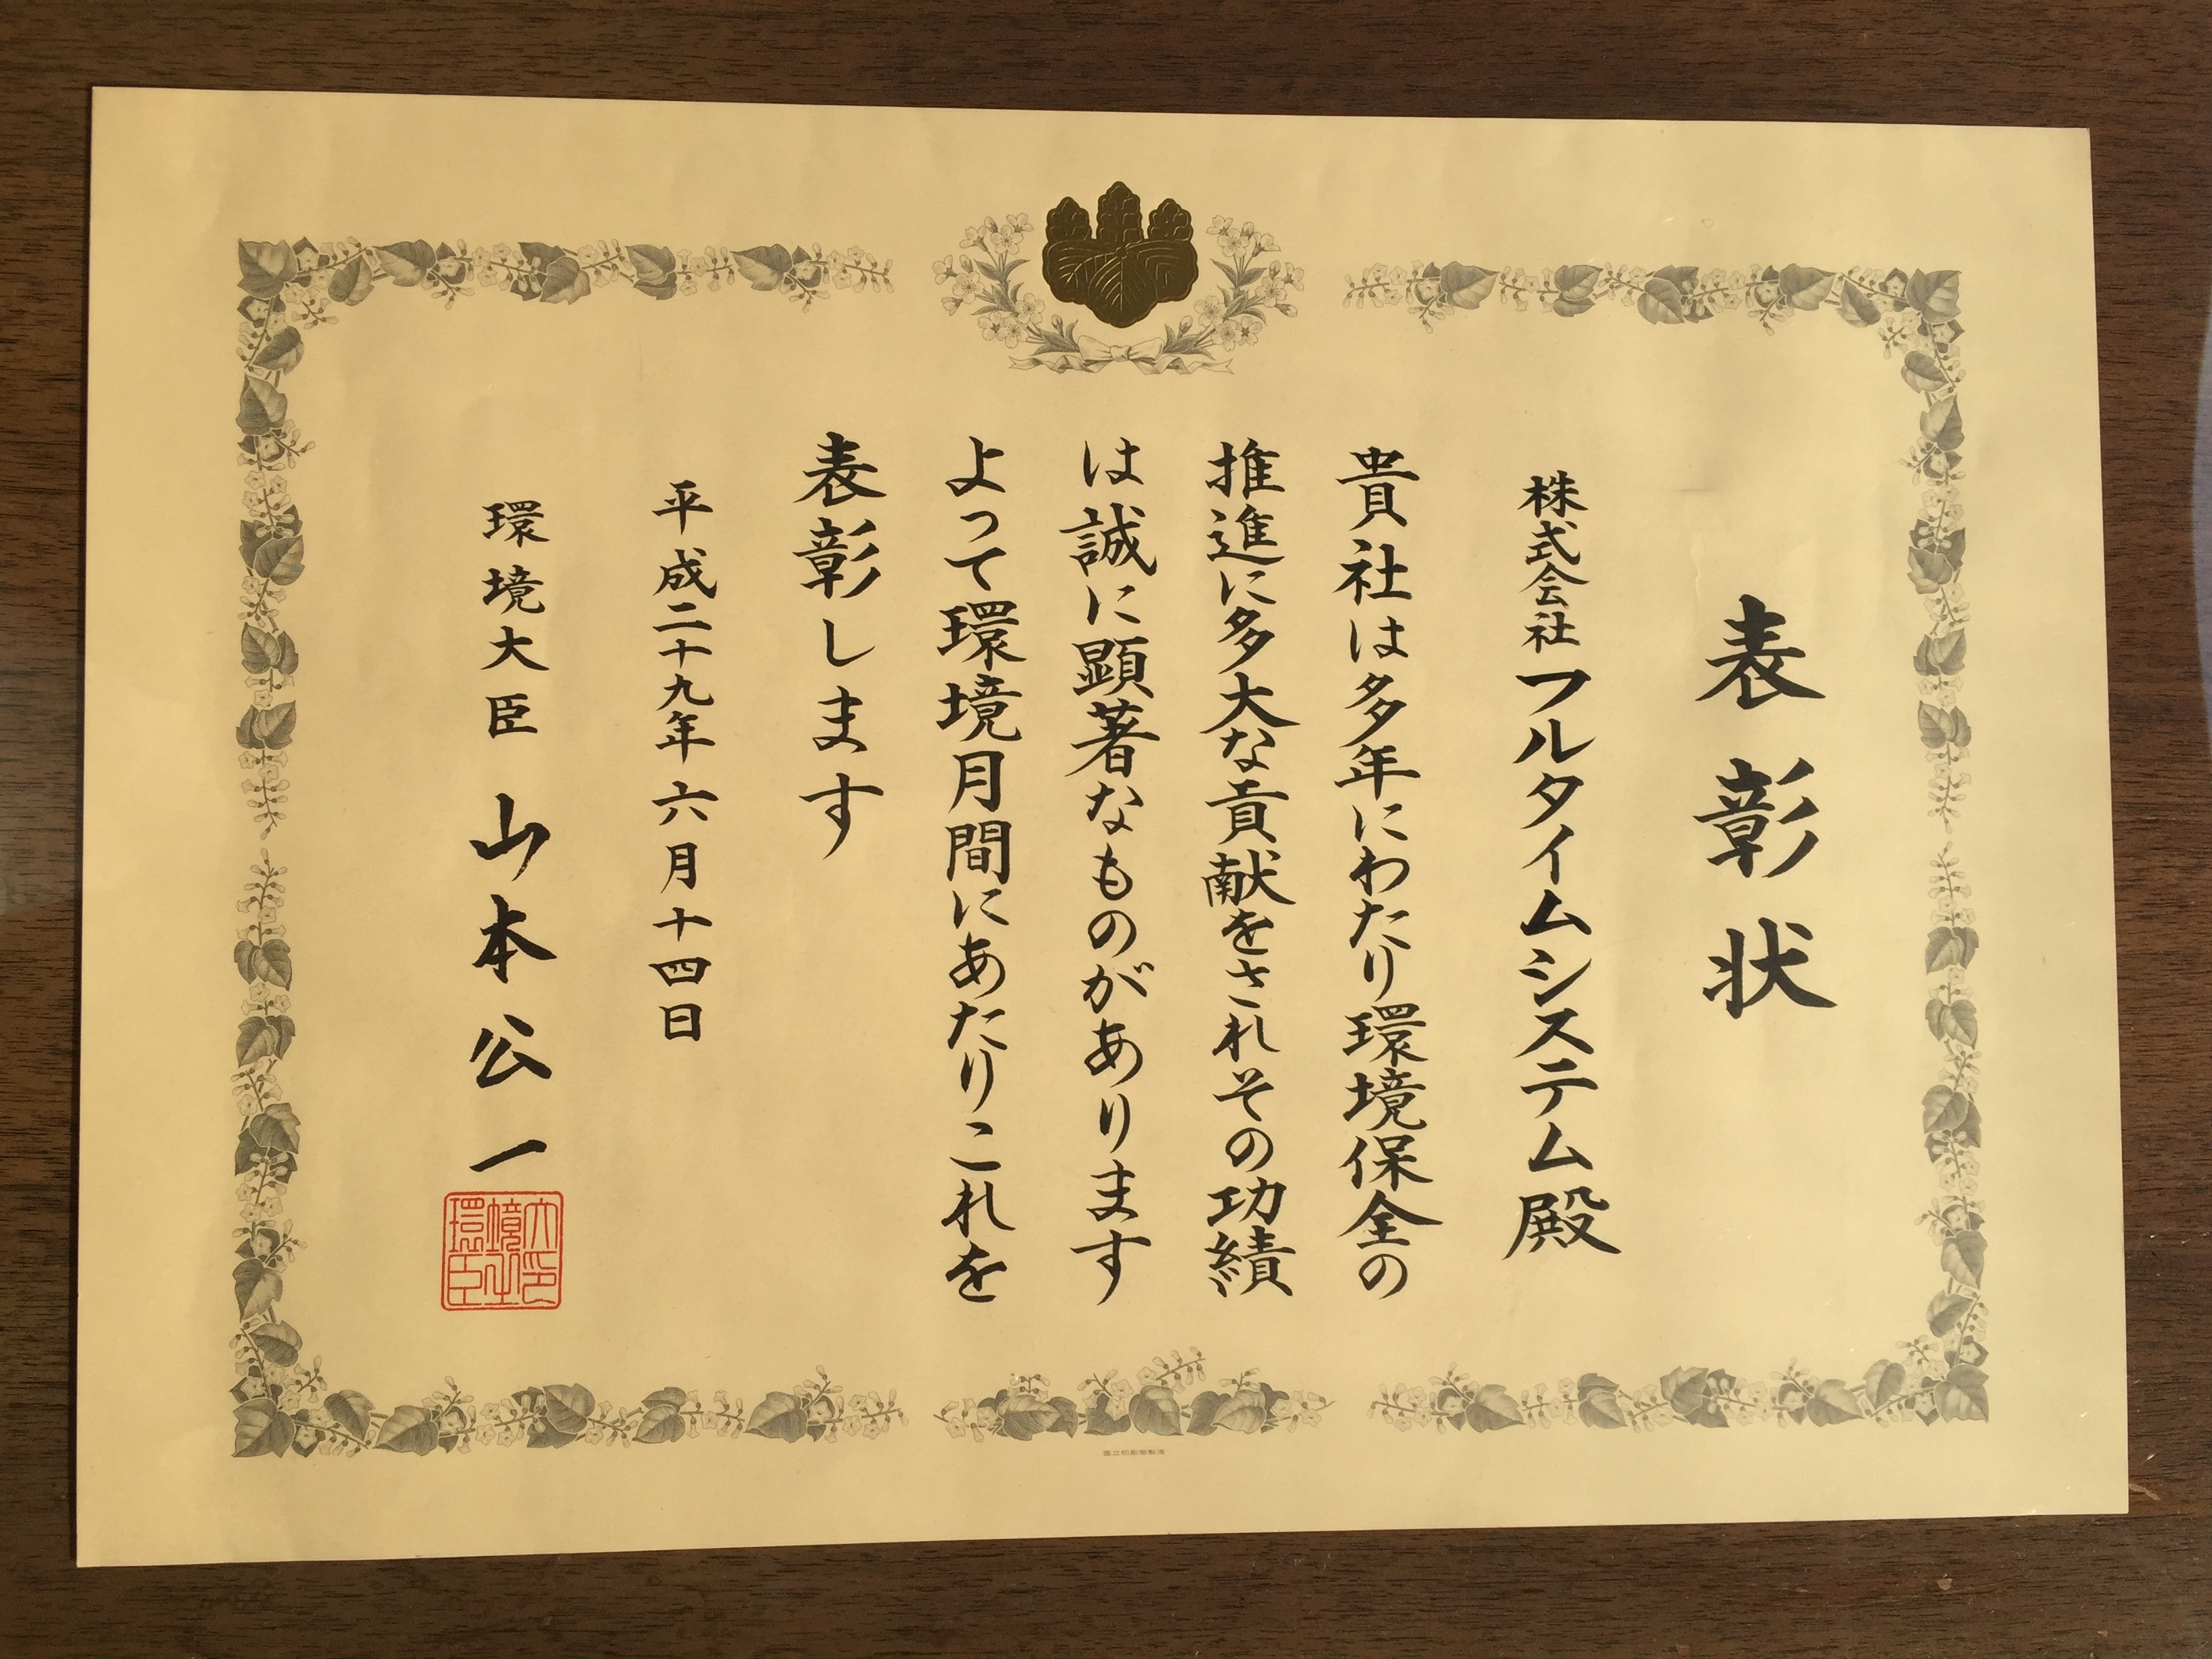 表彰状
株式会社フルタイムシステム殿
貴社は多年にわたり環境保全の
推進に多大な貢献をされその功績
は誠に顕著なものがあります
よって環境月間にあたりこれを
表彰します
平成二十九年六月十四日
環境大臣 山本公一
環境大臣之印
国立印刷局製造